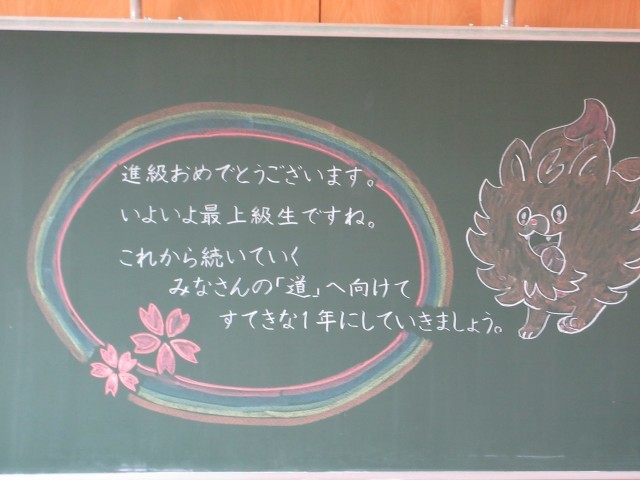 進級おめでとうございます。
いよいよ最上級生ですね。
これから続いていく
みなさんの「道」へ向けて
すてきな1年にしていきましょう。